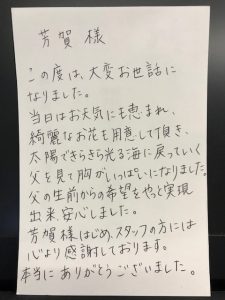 芳賀 様
この度は、大変お世話に
なりました。
当日はお天気にも恵まれ、
綺麗なお花も用意して頂き、
太陽できらきら光る海に戻っていく
父を見て胸がいっぱいになりました。
父の生前からの希望をやっと実現
出来、安心しました。
芳賀様はじめ、スタッフの方には
心より感謝しております。
本当にありがとうございました。